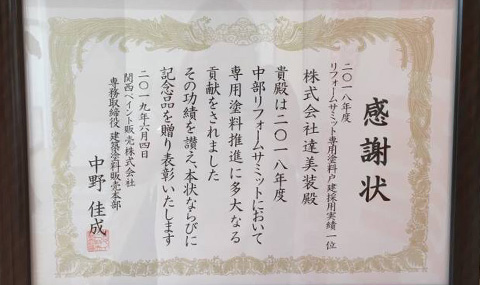 感謝状
二〇一八年度
リフォームサミット専用塗料戸建採用実績一位
株式会社達美装殿
貴殿は二〇一八年度
中部リフォームサミットにおいて
専用塗料推進に多大なる
貢献をされました
その功績を讃え、本状ならびに
記念品を贈り表彰いたします
二〇一九年六月四日
関西ペイント販売株式会社
専務取締役 建築塗料販売本部
中野 佳成